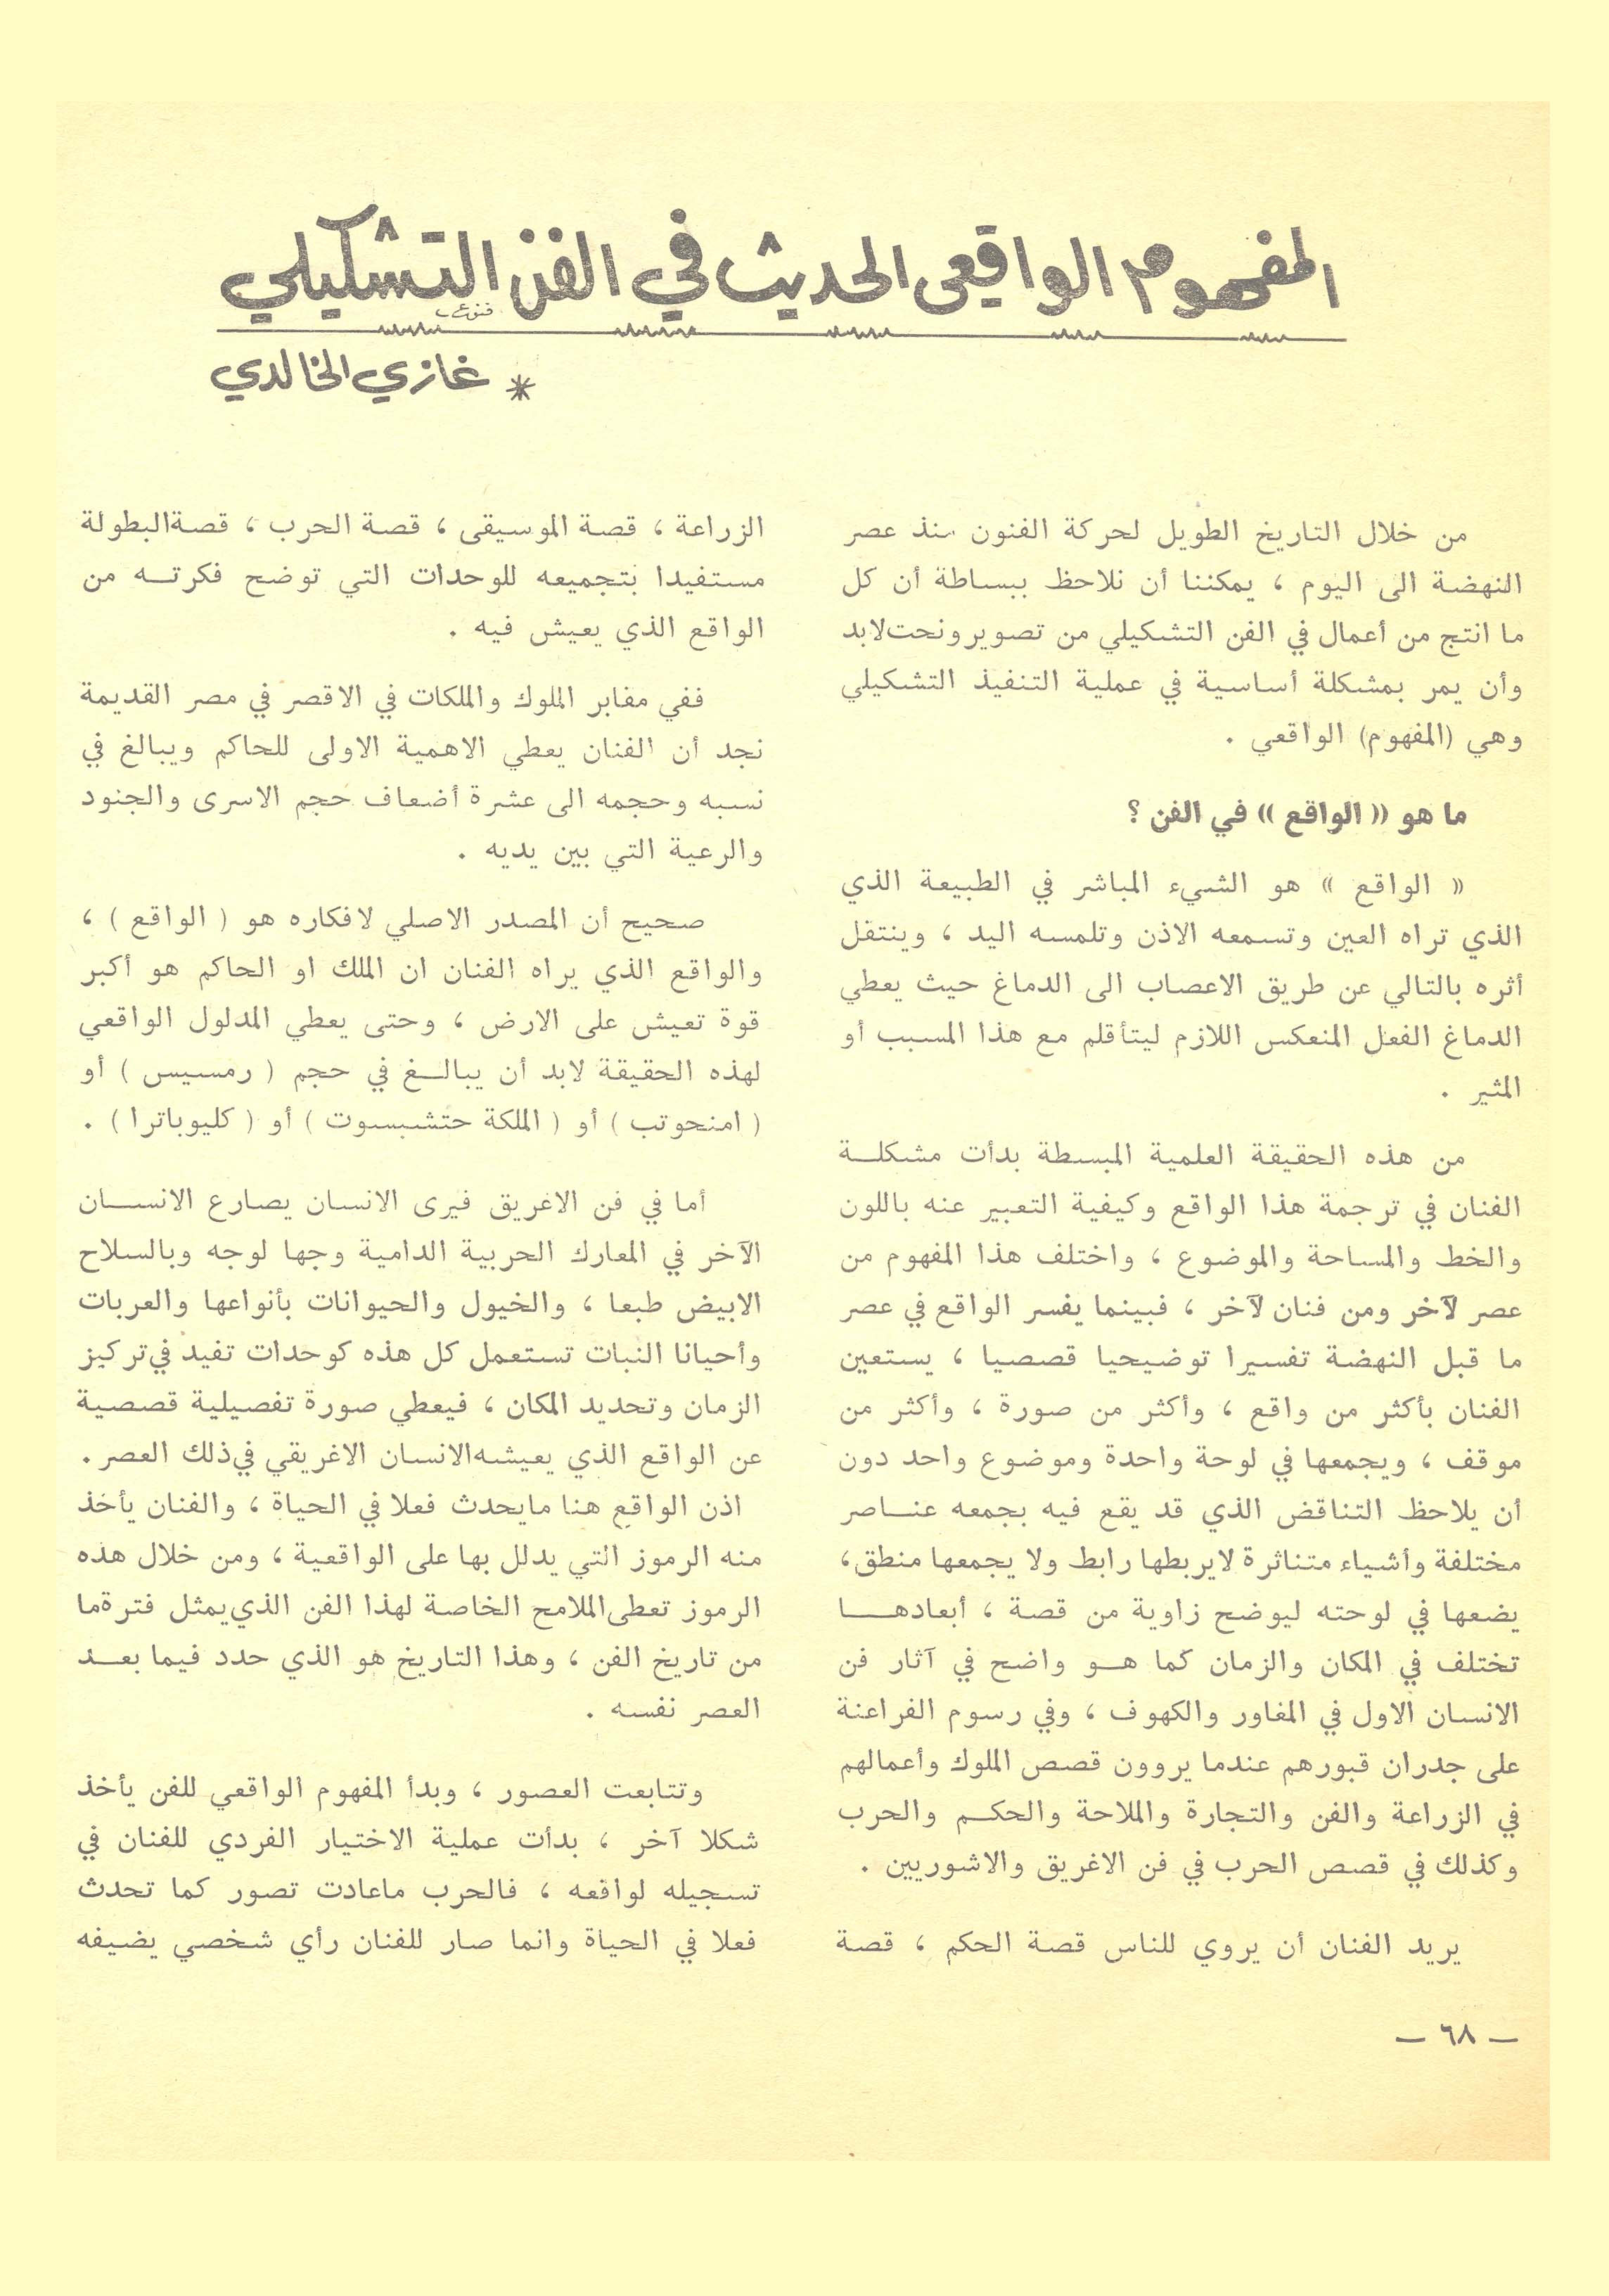 المفهوم الواقعي الحديث في الفن التشكيلي
* غازي الخالدي
من خلال التاريخ الطويل لحركة الفنون منذ عصر
النهضة الى اليوم ، يمكننا أن نلاحظ ببساطة أن كل
ما انتج من أعمال في الفن التشكيلي من تصوير ونحت لابد
وأن يمر بمشكلة أساسية في عملية التنفيذ التشكيلي
وهي (المفهوم) الواقعي .
ما هو « الواقع » في الفن ؟
« الواقع » هو الشيء المباشر في الطبيعة الذي
الذي تراه العين وتسمعه الاذن وتلمسه اليد ، وينتقل
أثره بالتالي عن طريق الاعصاب الى الدماغ حيث يعطي
الدماغ الفعل المنعكس اللازم ليتأقلم مع هذا المسبب أو
المثير .
من هذه الحقيقة العلمية المبسطة بدأت مشكلة
الفنان في ترجمة هذا الواقع وكيفية التعبير عنه باللون
والخط والمساحة والموضوع ، واختلف هذا المفهوم من
عصر لآخر ومن فنان لآخر ، فبينما يفسر الواقع في عصر
ما قبل النهضة تفسيرا توضيحيا قصصيا ، يستعين
الفنان بأكثر من واقع ، وأكثر من صورة ، وأكثر من
موقف ، ويجمعها في لوحة واحدة وموضوع واحد دون
أن يلاحظ التناقض الذي قد يقع فيه بجمعه عناصر
مختلفة وأشياء متناثرة لايربطها رابط ولا يجمعها منطق،
يضعها في لوحته ليوضح زاوية من قصة ، أبعادها
تختلف في المكان والزمان كما هو واضح في آثار فن
الانسان الاول في المغاور والكهوف ، وفي رسوم الفراعنة
على جدران قبورهم عندما يروون قصص الملوك وأعمالهم
في الزراعة والفن والتجارة والملاحة والحكم والحرب
وكذلك في قصص الحرب في فن الاغريق والاشوريين .
يريد الفنان أن يروي للناس قصة الحكم ، قصة
الزراعة ، قصة الموسيقى ، قصة الحرب ، قصةالبطولة
مستفيدا بتجميعه للوحدات التي توضح فكرته من
الواقع الذي يعيش فيه .
ففي مقابر الملوك والملكات في الاقصر في مصر القديمة
نجد أن الفنان يعطي الاهمية الاولى للحاكم ويبالغ في
نسبه وحجمه الى عشرة أضعاف حجم الاسرى والجنود
والرعية التي بين يديه .
صحيح أن المصدر الاصلي لافكاره هو ( الواقع ) ،
والواقع الذي يراه الفنان ان الملك او الحاكم هو أكبر
قوة تعيش على الارض ، وحتى يعطي المدلول الواقعي
لهذه الحقيقة لابد أن يبالغ في حجم ( رمسيس ) أو
( امنحوتب ) أو ( الملكة حتشبسوت ) أو ( كليوباترا ) .
أما في فن الاغريق فيرى الانسان يصارع الانسان
الآخر في المعارك الحربية الدامية وجها لوجه وبالسلاح
الابيض طبعا ، والخيول والحيوانات بأنواعها والعربات
وأحيانا النبات تستعمل كل هذه كوحدات تفيد في تركيز
الزمان وتحديد المكان ، فيعطي صورة تفصيلية قصصية
عن الواقع الذي يعيشه الانسان الاغريقي في ذلك العصر .
اذن الواقع هنا مايحدث فعلا في الحياة ، والفنان يأخذ
منه الرموز التي يدلل بها على الواقعية ، ومن خلال هذه
الرموز تعطى الملامح الخاصة لهذا الفن الذي يمثل فترة ما
من تاريخ الفن ، وهذا التاريخ هو الذي حدد فيما بعد
العصر نفسه .
وتتابعت العصور ، وبدأ المفهوم الواقعي للفن يأخذ
شكلا آخر ، بدأت عملية الاختيار الفردي للفنان في
تسجيله لواقعه ، فالحرب ماعادت تصور كما تحدث
فعلا في الحياة وانما صار للفنان رأي شخصي يضيفه
— ٦٨ —